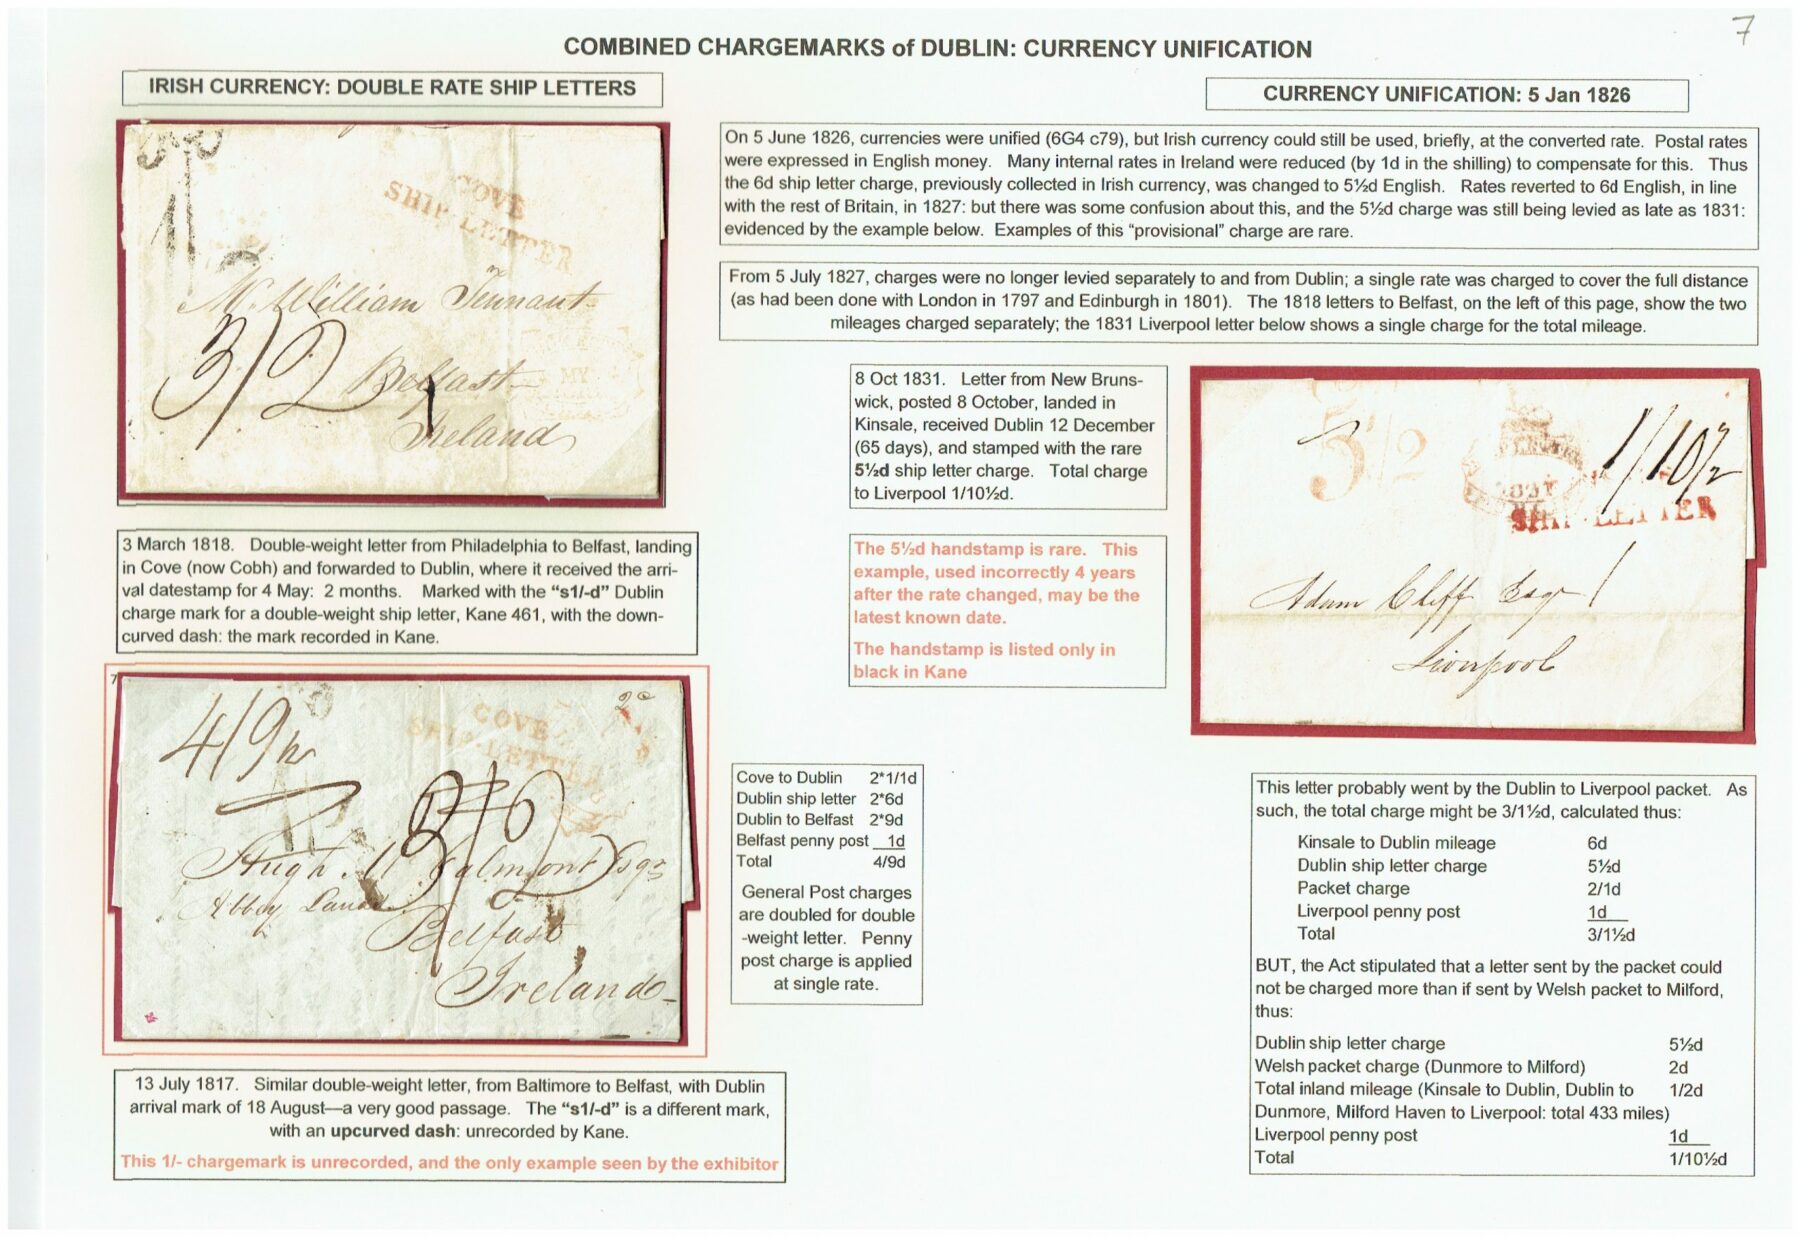 7
COMBINED CHARGEMARKS of DUBLIN: CURRENCY UNIFICATION
IRISH CURRENCY: DOUBLE RATE SHIP LETTERS
COVE
SHIP LETTER
Mr. William Tennant
3/2
Belfast
Ireland
3 March 1818. Double-weight letter from Philadelphia to Belfast, landing
in Cove (now Cobh) and forwarded to Dublin, where it received the arri-
val datestamp for 4 May: 2 months. Marked with the “s1/-d” Dublin
charge mark for a double-weight ship letter, Kane 461, with the down-
curved dash: the mark recorded in Kane.
7
4/9
COVE
SHIP-LETTER
Hugh
Belfast
Ireland
13 July 1817. Similar double-weight letter, from Baltimore to Belfast, with Dublin
arrival mark of 18 August—a very good passage. The “s1/-d” is a different mark,
with an upcurved dash: unrecorded by Kane.
This 1/- chargemark is unrecorded, and the only example seen by the exhibitor
Cove to Dublin 2*1/1d
Dublin ship letter 2*6d
Dublin to Belfast 2*9d
Belfast penny post 1d
Total 4/9d
General Post charges
are doubled for double
-weight letter. Penny
post charge is applied
at single rate.
CURRENCY UNIFICATION: 5 Jan 1826
On 5 June 1826, currencies were unified (6G4 c79), but Irish currency could still be used, briefly, at the converted rate. Postal rates
were expressed in English money. Many internal rates in Ireland were reduced (by 1d in the shilling) to compensate for this. Thus
the 6d ship letter charge, previously collected in Irish currency, was changed to 5½d English. Rates reverted to 6d English, in line
with the rest of Britain, in 1827: but there was some confusion about this, and the 5½d charge was still being levied as late as 1831:
evidenced by the example below. Examples of this “provisional” charge are rare.
From 5 July 1827, charges were no longer levied separately to and from Dublin; a single rate was charged to cover the full distance
(as had been done with London in 1797 and Edinburgh in 1801). The 1818 letters to Belfast, on the left of this page, show the two
mileages charged separately; the 1831 Liverpool letter below shows a single charge for the total mileage.
8 Oct 1831. Letter from New Bruns-
wick, posted 8 October, landed in
Kinsale, received Dublin 12 December
(65 days), and stamped with the rare
5½d ship letter charge. Total charge
to Liverpool 1/10½d.
The 5½d handstamp is rare. This
example, used incorrectly 4 years
after the rate changed, may be the
latest known date.
The handstamp is listed only in
black in Kane
5 1/2
1/10½
1831
SHIP LETTER
Adam Cliff Esqr
Liverpool
This letter probably went by the Dublin to Liverpool packet. As
such, the total charge might be 3/1½d, calculated thus:
Kinsale to Dublin mileage 6d
Dublin ship letter charge 5½d
Packet charge 2/1d
Liverpool penny post 1d
Total 3/1½d
BUT, the Act stipulated that a letter sent by the packet could
not be charged more than if sent by Welsh packet to Milford,
thus:
Dublin ship letter charge 5½d
Welsh packet charge (Dunmore to Milford) 2d
Total inland mileage (Kinsale to Dublin, Dublin to 1/2d
Dunmore, Milford Haven to Liverpool: total 433 miles)
Liverpool penny post 1d
Total 1/10½d